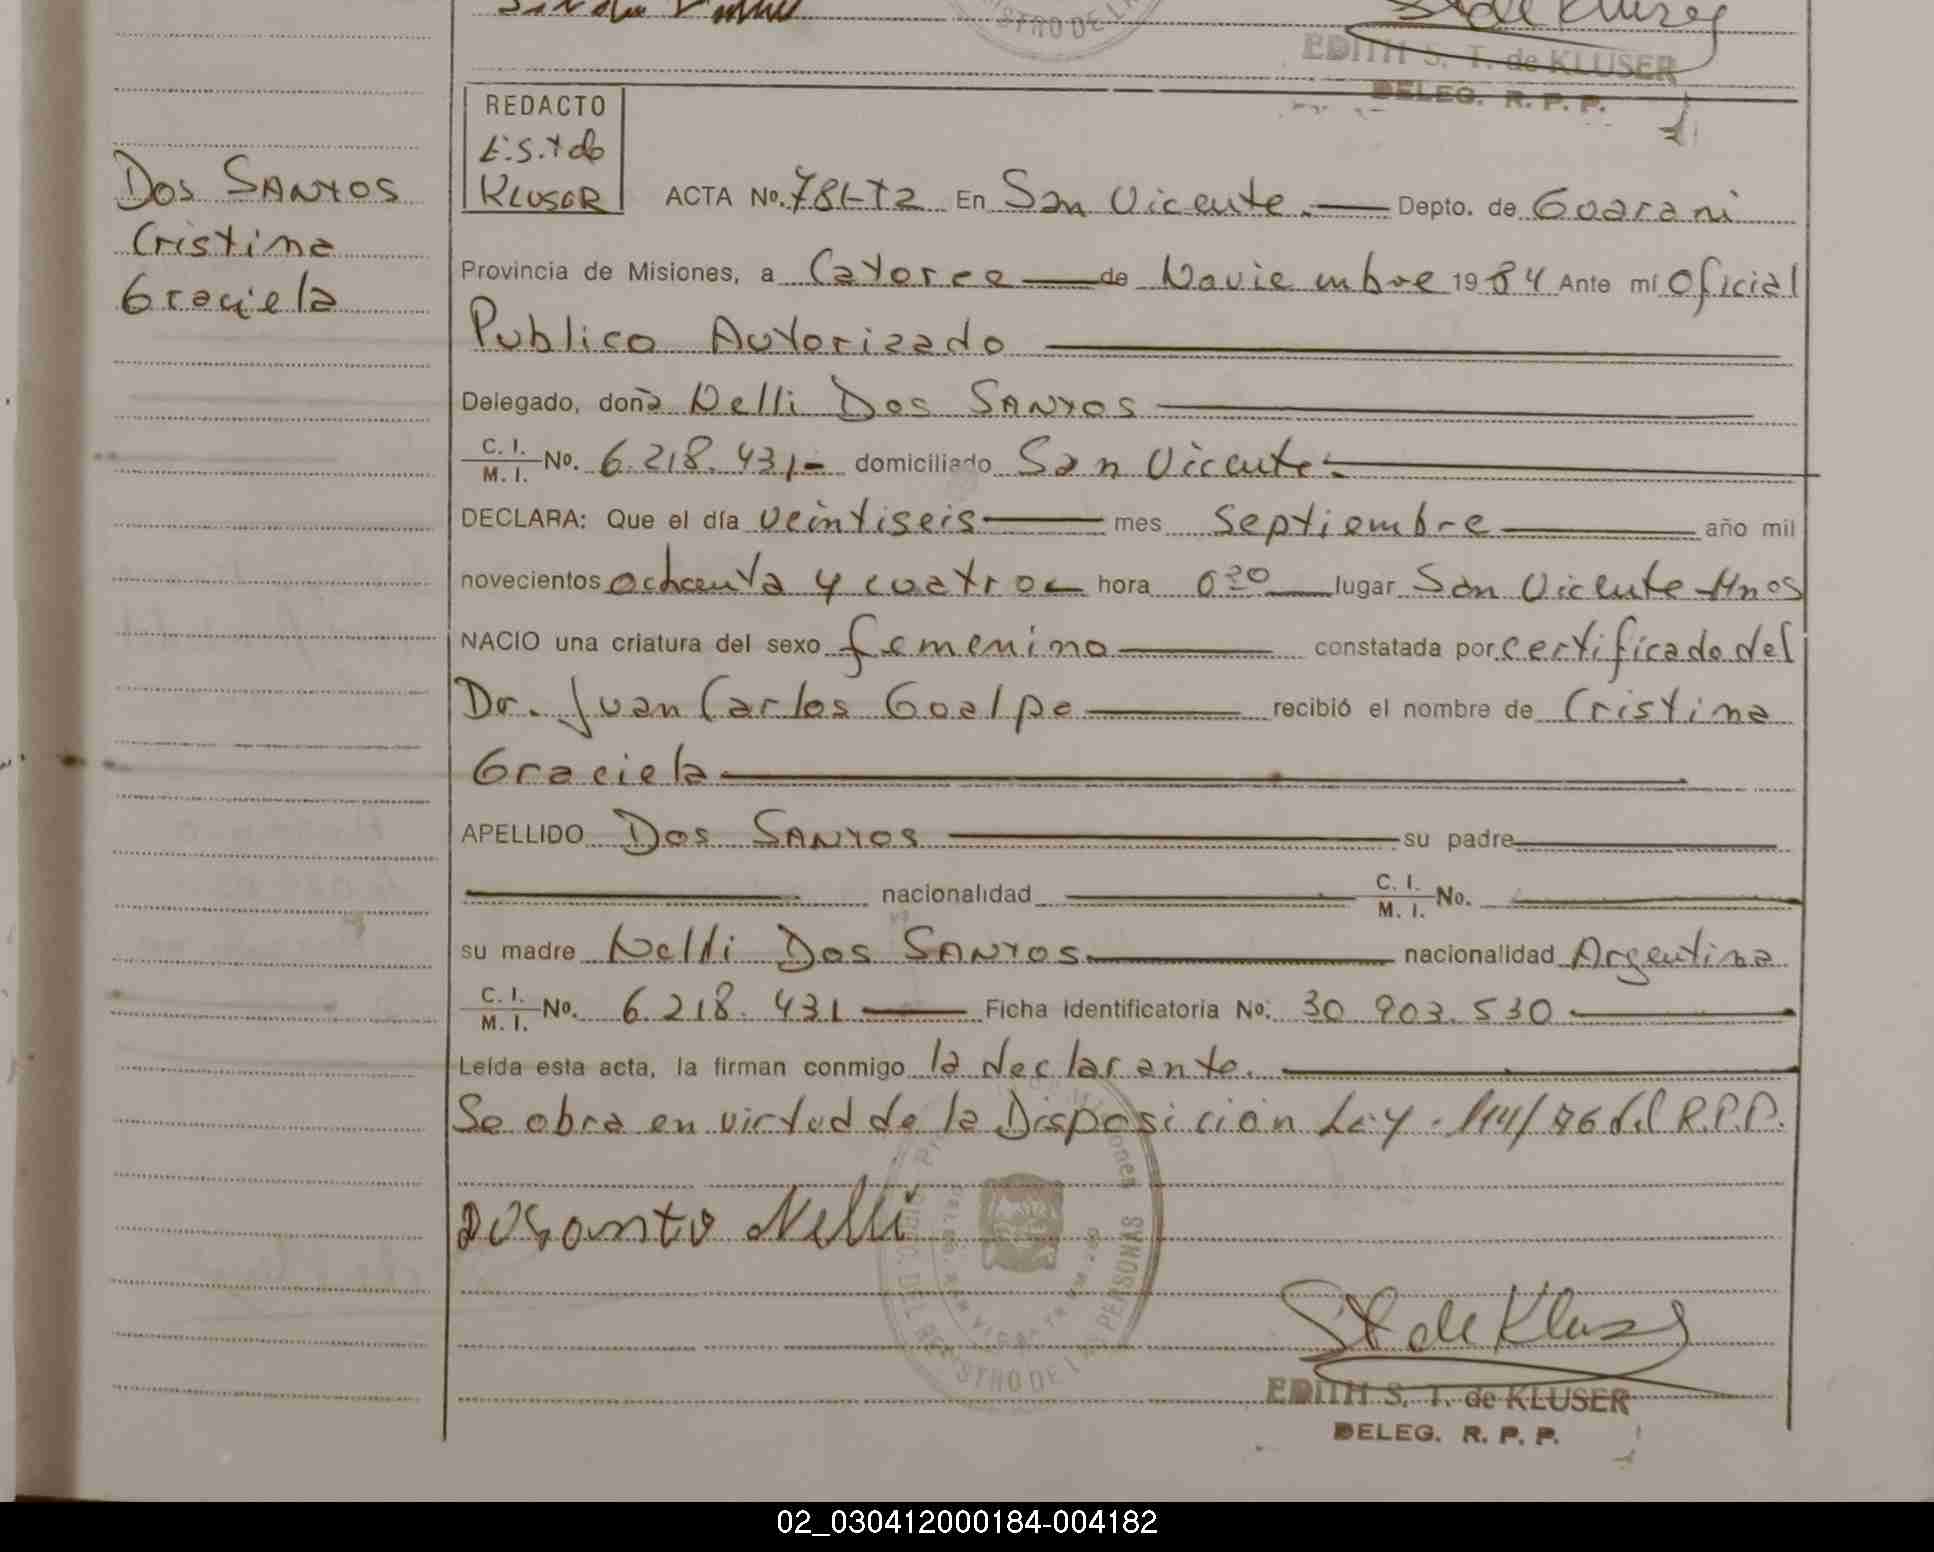 EDITH S. T. de KLUSER
DELEG. R. P. P.
REDACTO
E.S.T de
KLUSER
Dos SANTOS
Cristina
Graciela
ACTA No. 781-T2 En San Vicente.— Depto. de Guarani
Provincia de Misiones, a Catorce — de Noviembre 1984 Ante mí Oficial
Publico Autorizado
Delegado, doña Nelli Dos SANTOS
C. I. / M. I. No. 6.218.431- domiciliado San Vicente.
DECLARA: Que el día veintiseis mes Septiembre año mil
novecientos ochenta y cuatro hora 0:30 lugar San Vicente Mnes
NACIO una criatura del sexo femenino constatada por certificado del
Dr. Juan Carlos Goelpe recibió el nombre de Cristina
Graciela
APELLIDO Dos SANTOS su padre
nacionalidad C. I. / M. I. No.
su madre Nelli Dos SANTOS nacionalidad Argentina
C. I. / M. I. No. 6.218.431 Ficha identificatoria No. 30.903.530
Leída esta acta, la firman conmigo la declarante.
Se obra en virtud de la Disposición Ley. 114/76 del R.P.P.
Dosanto Nelli
St de Kluser
EDITH S. T. de KLUSER
DELEG. R. P. P.
02_030412000184-004182